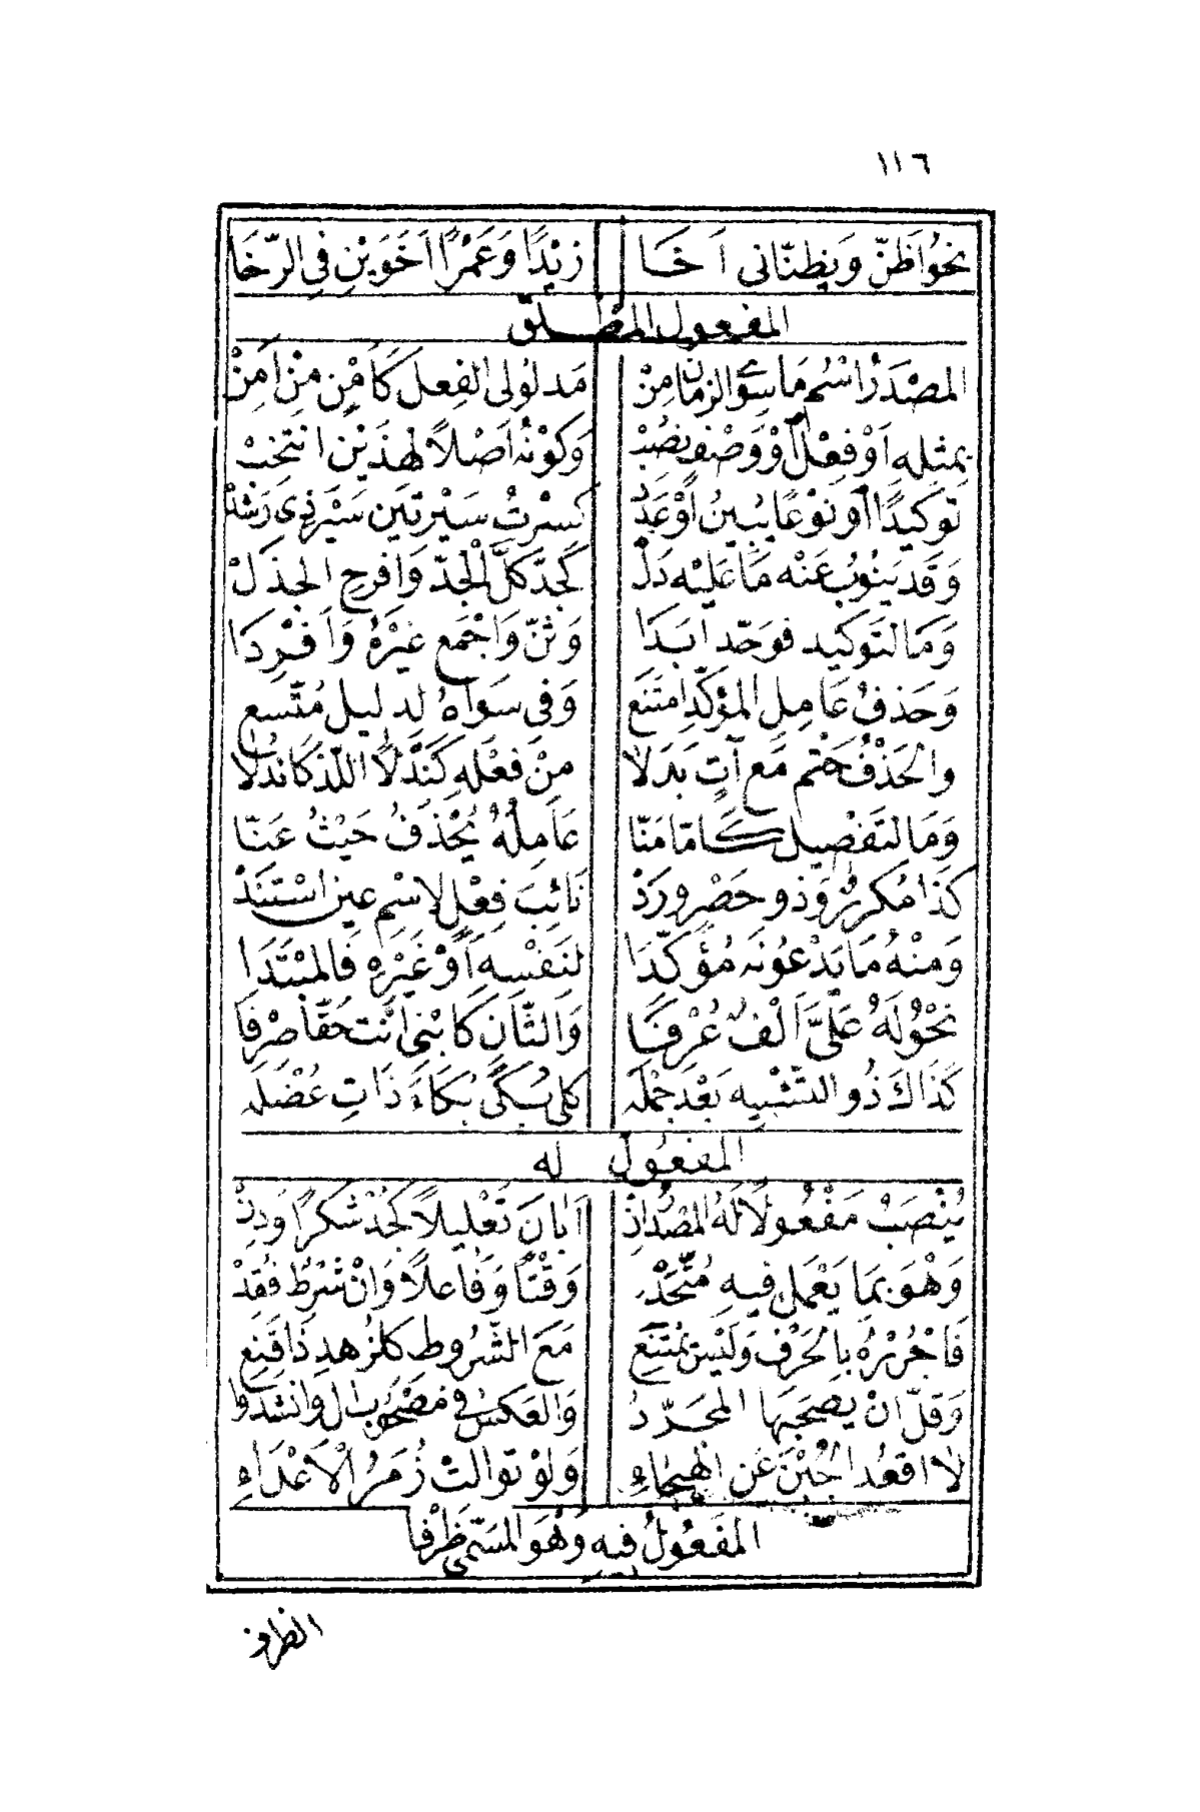 ١١٦
نحو أظنّ ويظنّاني أخا زيدًا وعمرًا أخوين في الرّخا
المفعول المطلق
المصدر اسم ما سوى الزمان من مدلولي الفعل كأمن من أمن
بمثله أو فعل أو وصف نصب وكونه أصلاً لهذين انتخب
توكيدًا أو نوعًا يبين أو عدد كسرت سيرتين سير ذي رشد
وقد ينوب عنه ما عليه دلّ كجدّ كلّ الجدّ وافرح الجذل
وما لتوكيد فوحّد أبدا وثنّ واجمع غيره وأفردا
وحذف عامل المؤكّد امتنع وفي سواه لدليل متّسع
والحذف حتم مع آت بدلا من فعله كندلاً اللّذ كاندلا
وما لتفصيل كإمّا منّا عامله يحذف حيث عنّا
كذا مكرر وذو حصر ورد نائب فعل لاسم عين استند
ومنه ما يدعونه مؤكّدا لنفسه أو غيره فالمبتدا
نحو له عليّ ألف عرفا والثّان كابني أنت حقّا صرفا
كذاك ذو التشبيه بعد جمله كلي بكى بكاء ذات عضله
المفعول له
ينصب مفعولاً له المصدر إذ أبان تعليلاً كجد شكرًا ودن
وهو بما يعمل فيه متّحد وقتًا وفاعلاً وإن شرط فقد
فاجرره بالحرف وليس يمتنع مع الشّروط كلزهد ذا قنع
وقلّ أن يصحبها المجرّد والعكس في مصحوب أل وأنشدوا
لا أقعد الجبن عن الهيجاء ولو توالت زمر الأعداء
المفعول فيه وهو المسمّى ظرفا
الظرف